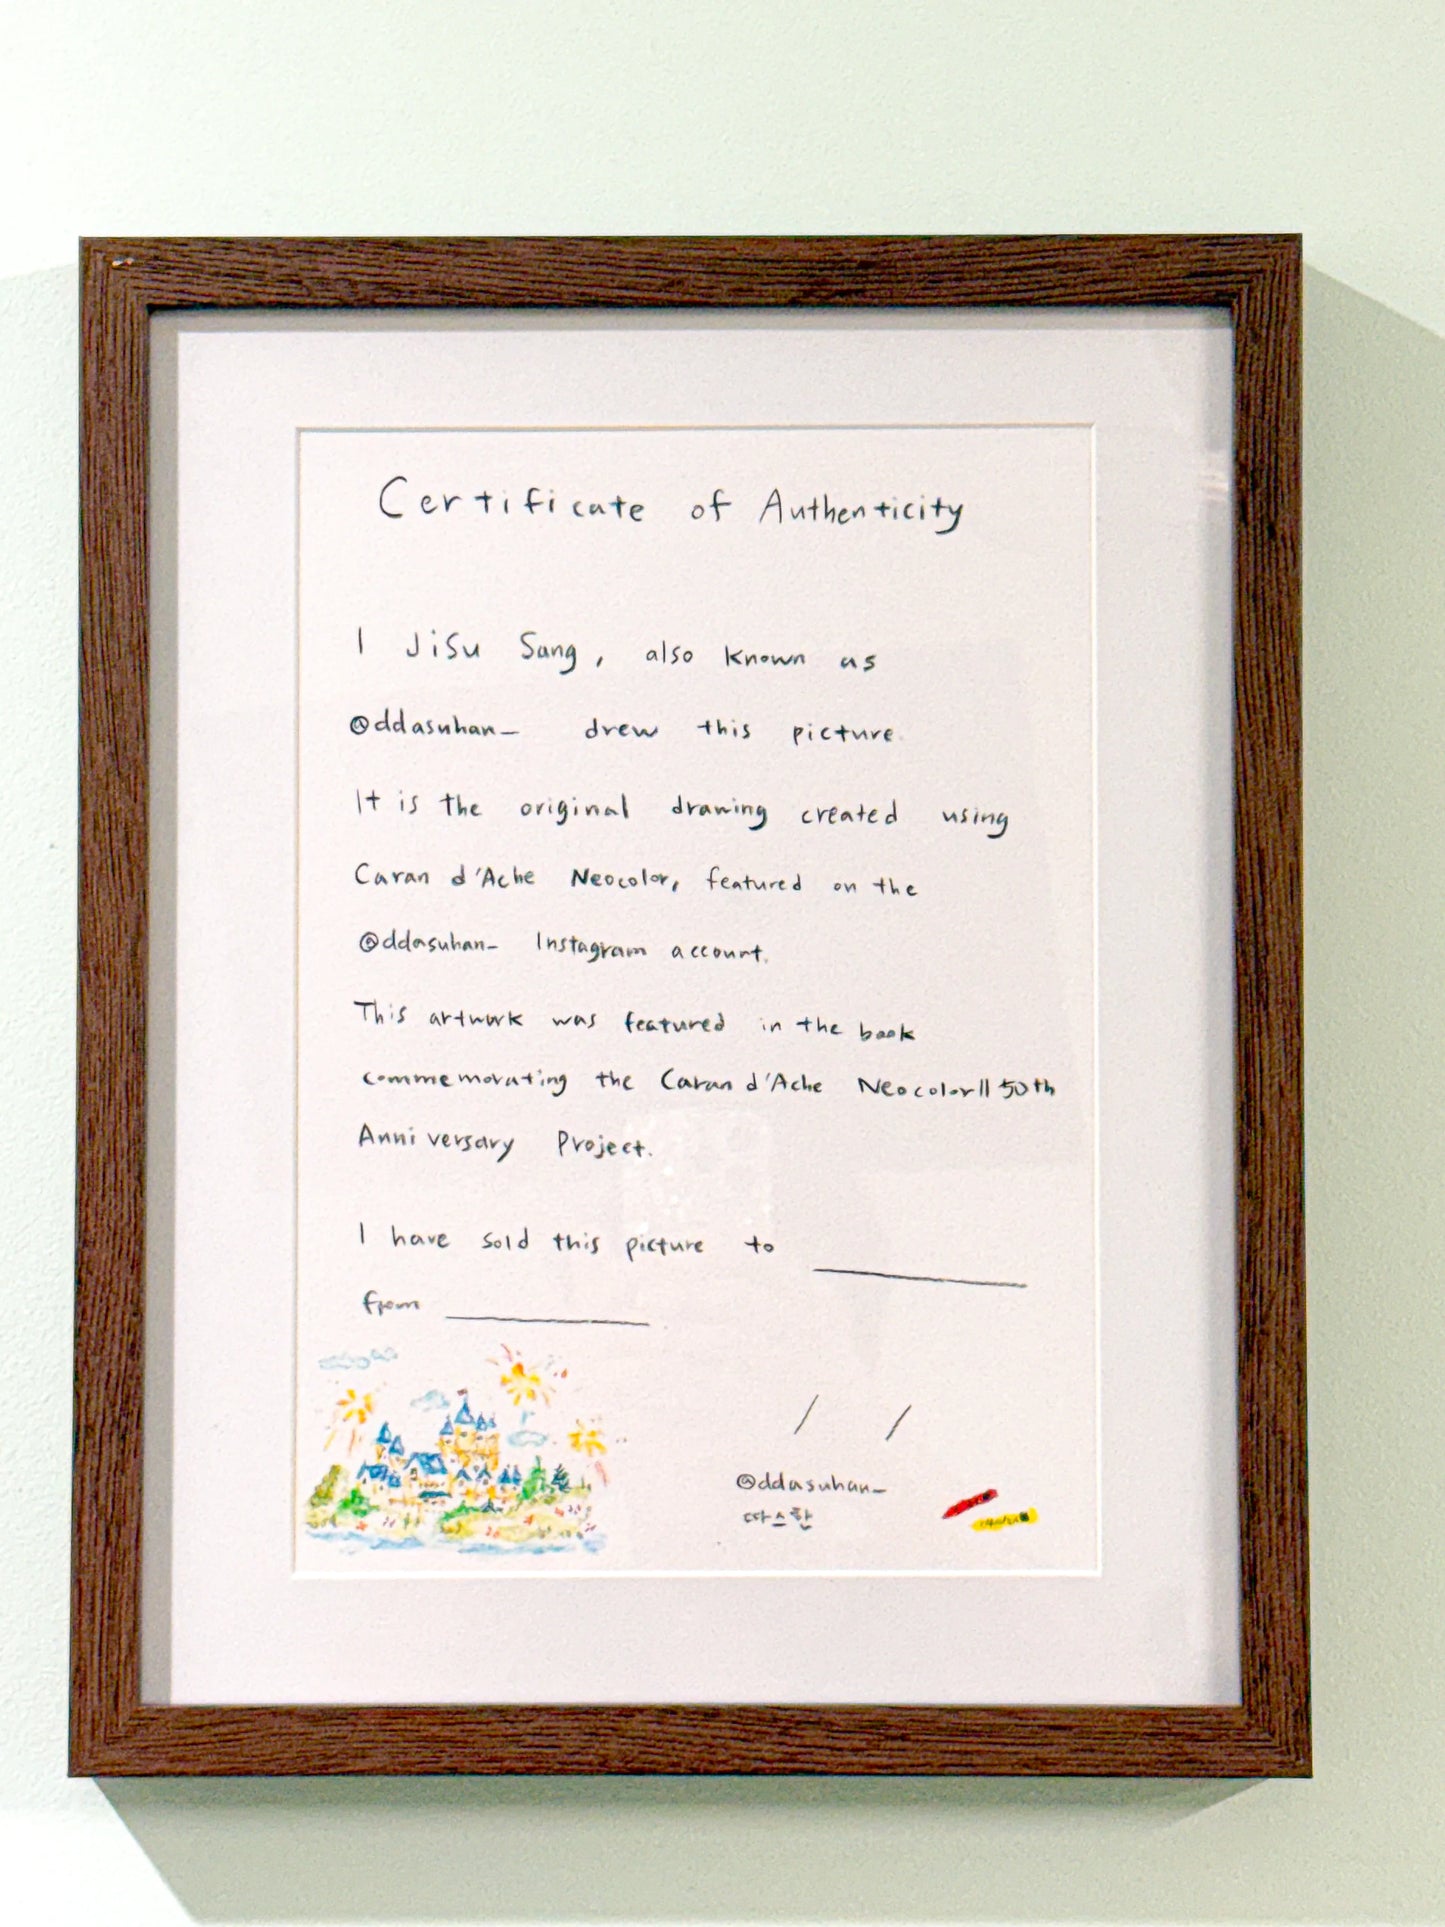 Certificate of Authenticity
I JiSu Sang, also known as
@ddasuhan_ drew this picture
It is the original drawing created using
Caran d'Ache Neocolor, featured on the
@ddasuhan_ Instagram account.
This artwork was featured in the book
commemorating the Caran d'Ache NeocolorII 50th
Anniversary Project.
I have sold this picture to ______
from ______
/ /
@ddasuhan_
따스한